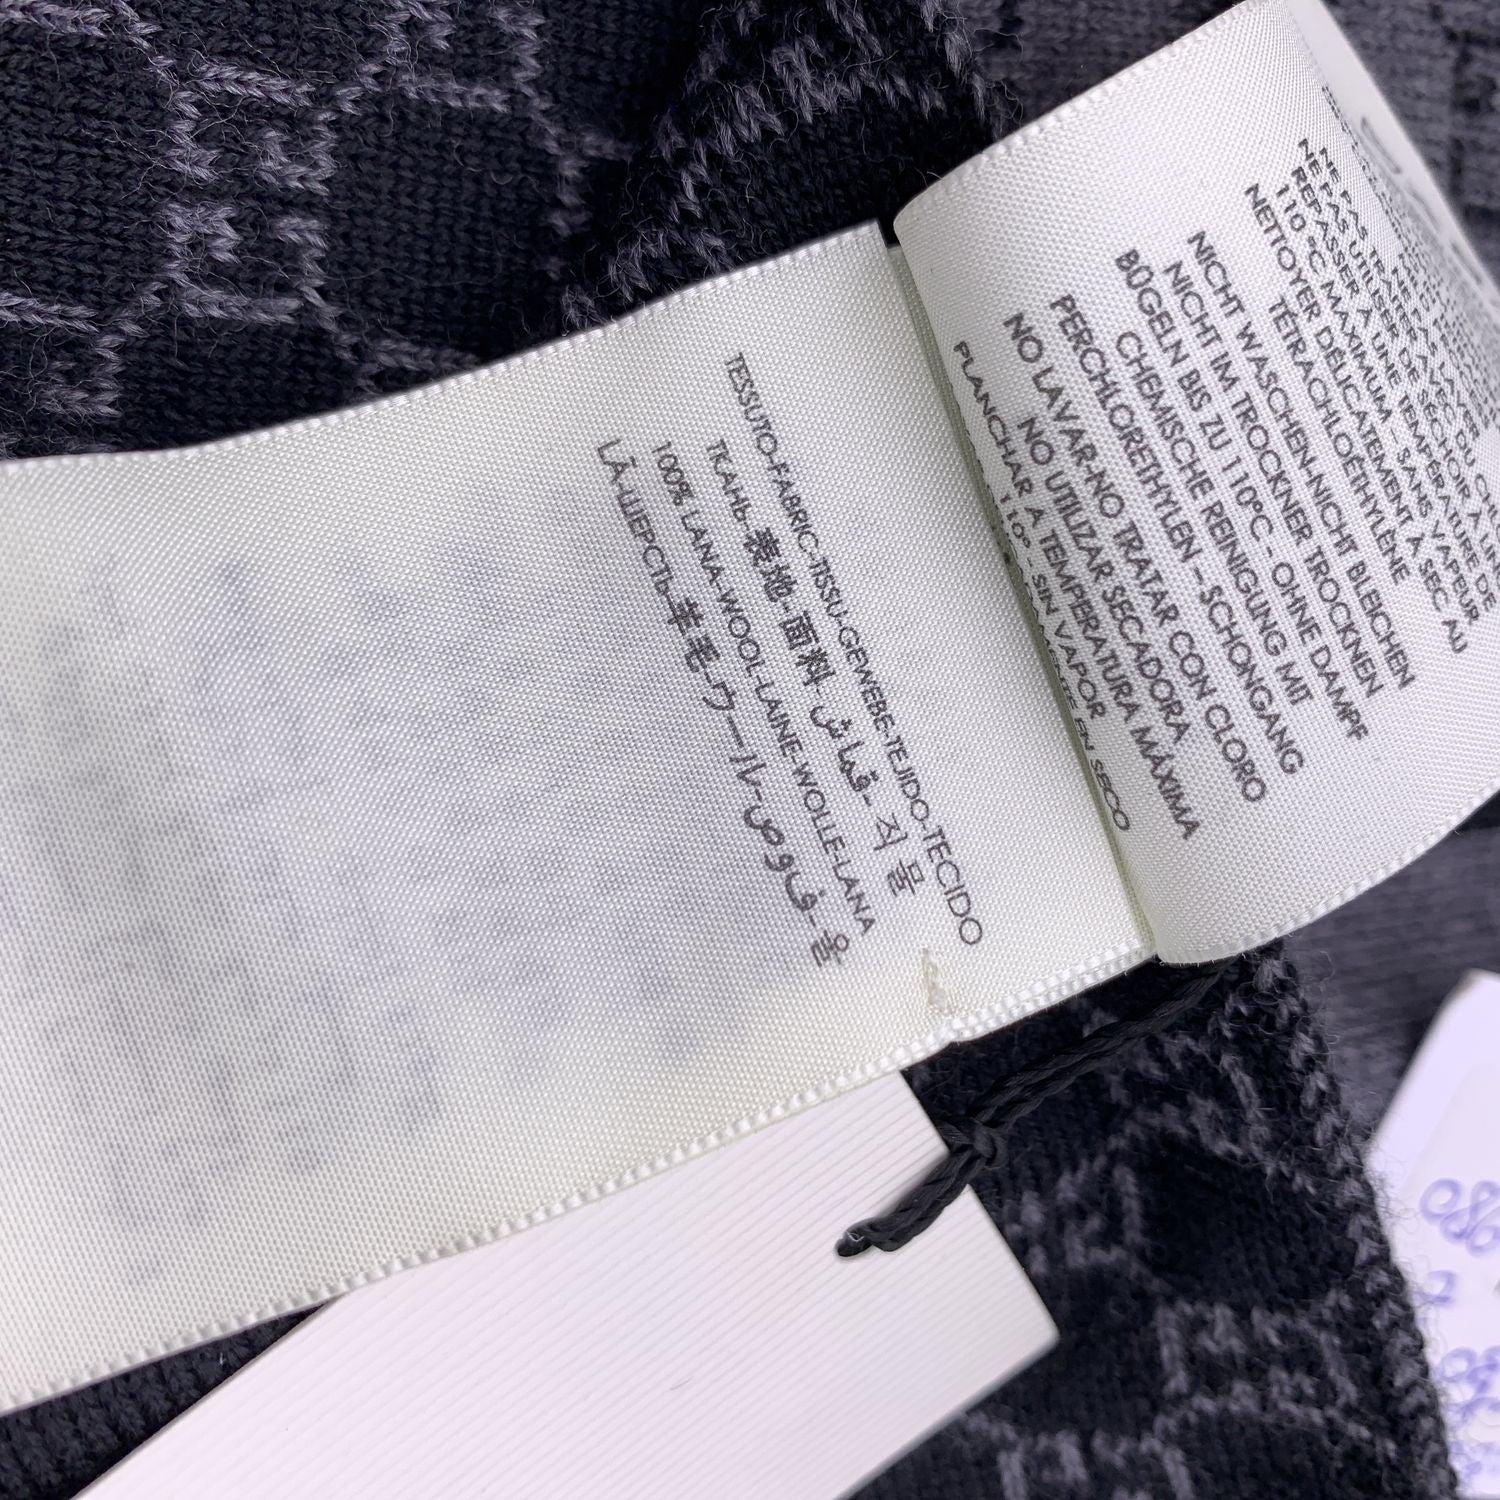 TESSUTO-FABRIC-TISSU-GEWEBE-TEJIDO-TECIDO
ТКАНЬ-表地-面料-قماش-직물
100% LANA-WOOL-LAINE-WOLLE-LANA
LÃ-ШЕРСТЬ-羊毛-ウール-صوف-울
NE PAS UTILISER DE SÉCHOIR À
REPASSER À UNE TEMPÉRATURE DE
110 °C MAXIMUM – SANS VAPEUR
NETTOYER DÉLICATEMENT À SEC AU
TÉTRACHLOÉTHYLÈNE
NICHT WASCHEN-NICHT BLEICHEN
NICHT IM TROCKNER TROCKNEN
BÜGELN BIS ZU 110°C - OHNE DAMPF
CHEMISCHE REINIGUNG MIT
PERCHLORETHYLEN – SCHONGANG
NO LAVAR-NO TRATAR CON CLORO
NO UTILIZAR SECADORA
PLANCHAR A TEMPERATURA MÁXIMA
110° - SIN VAPOR
EN SECO